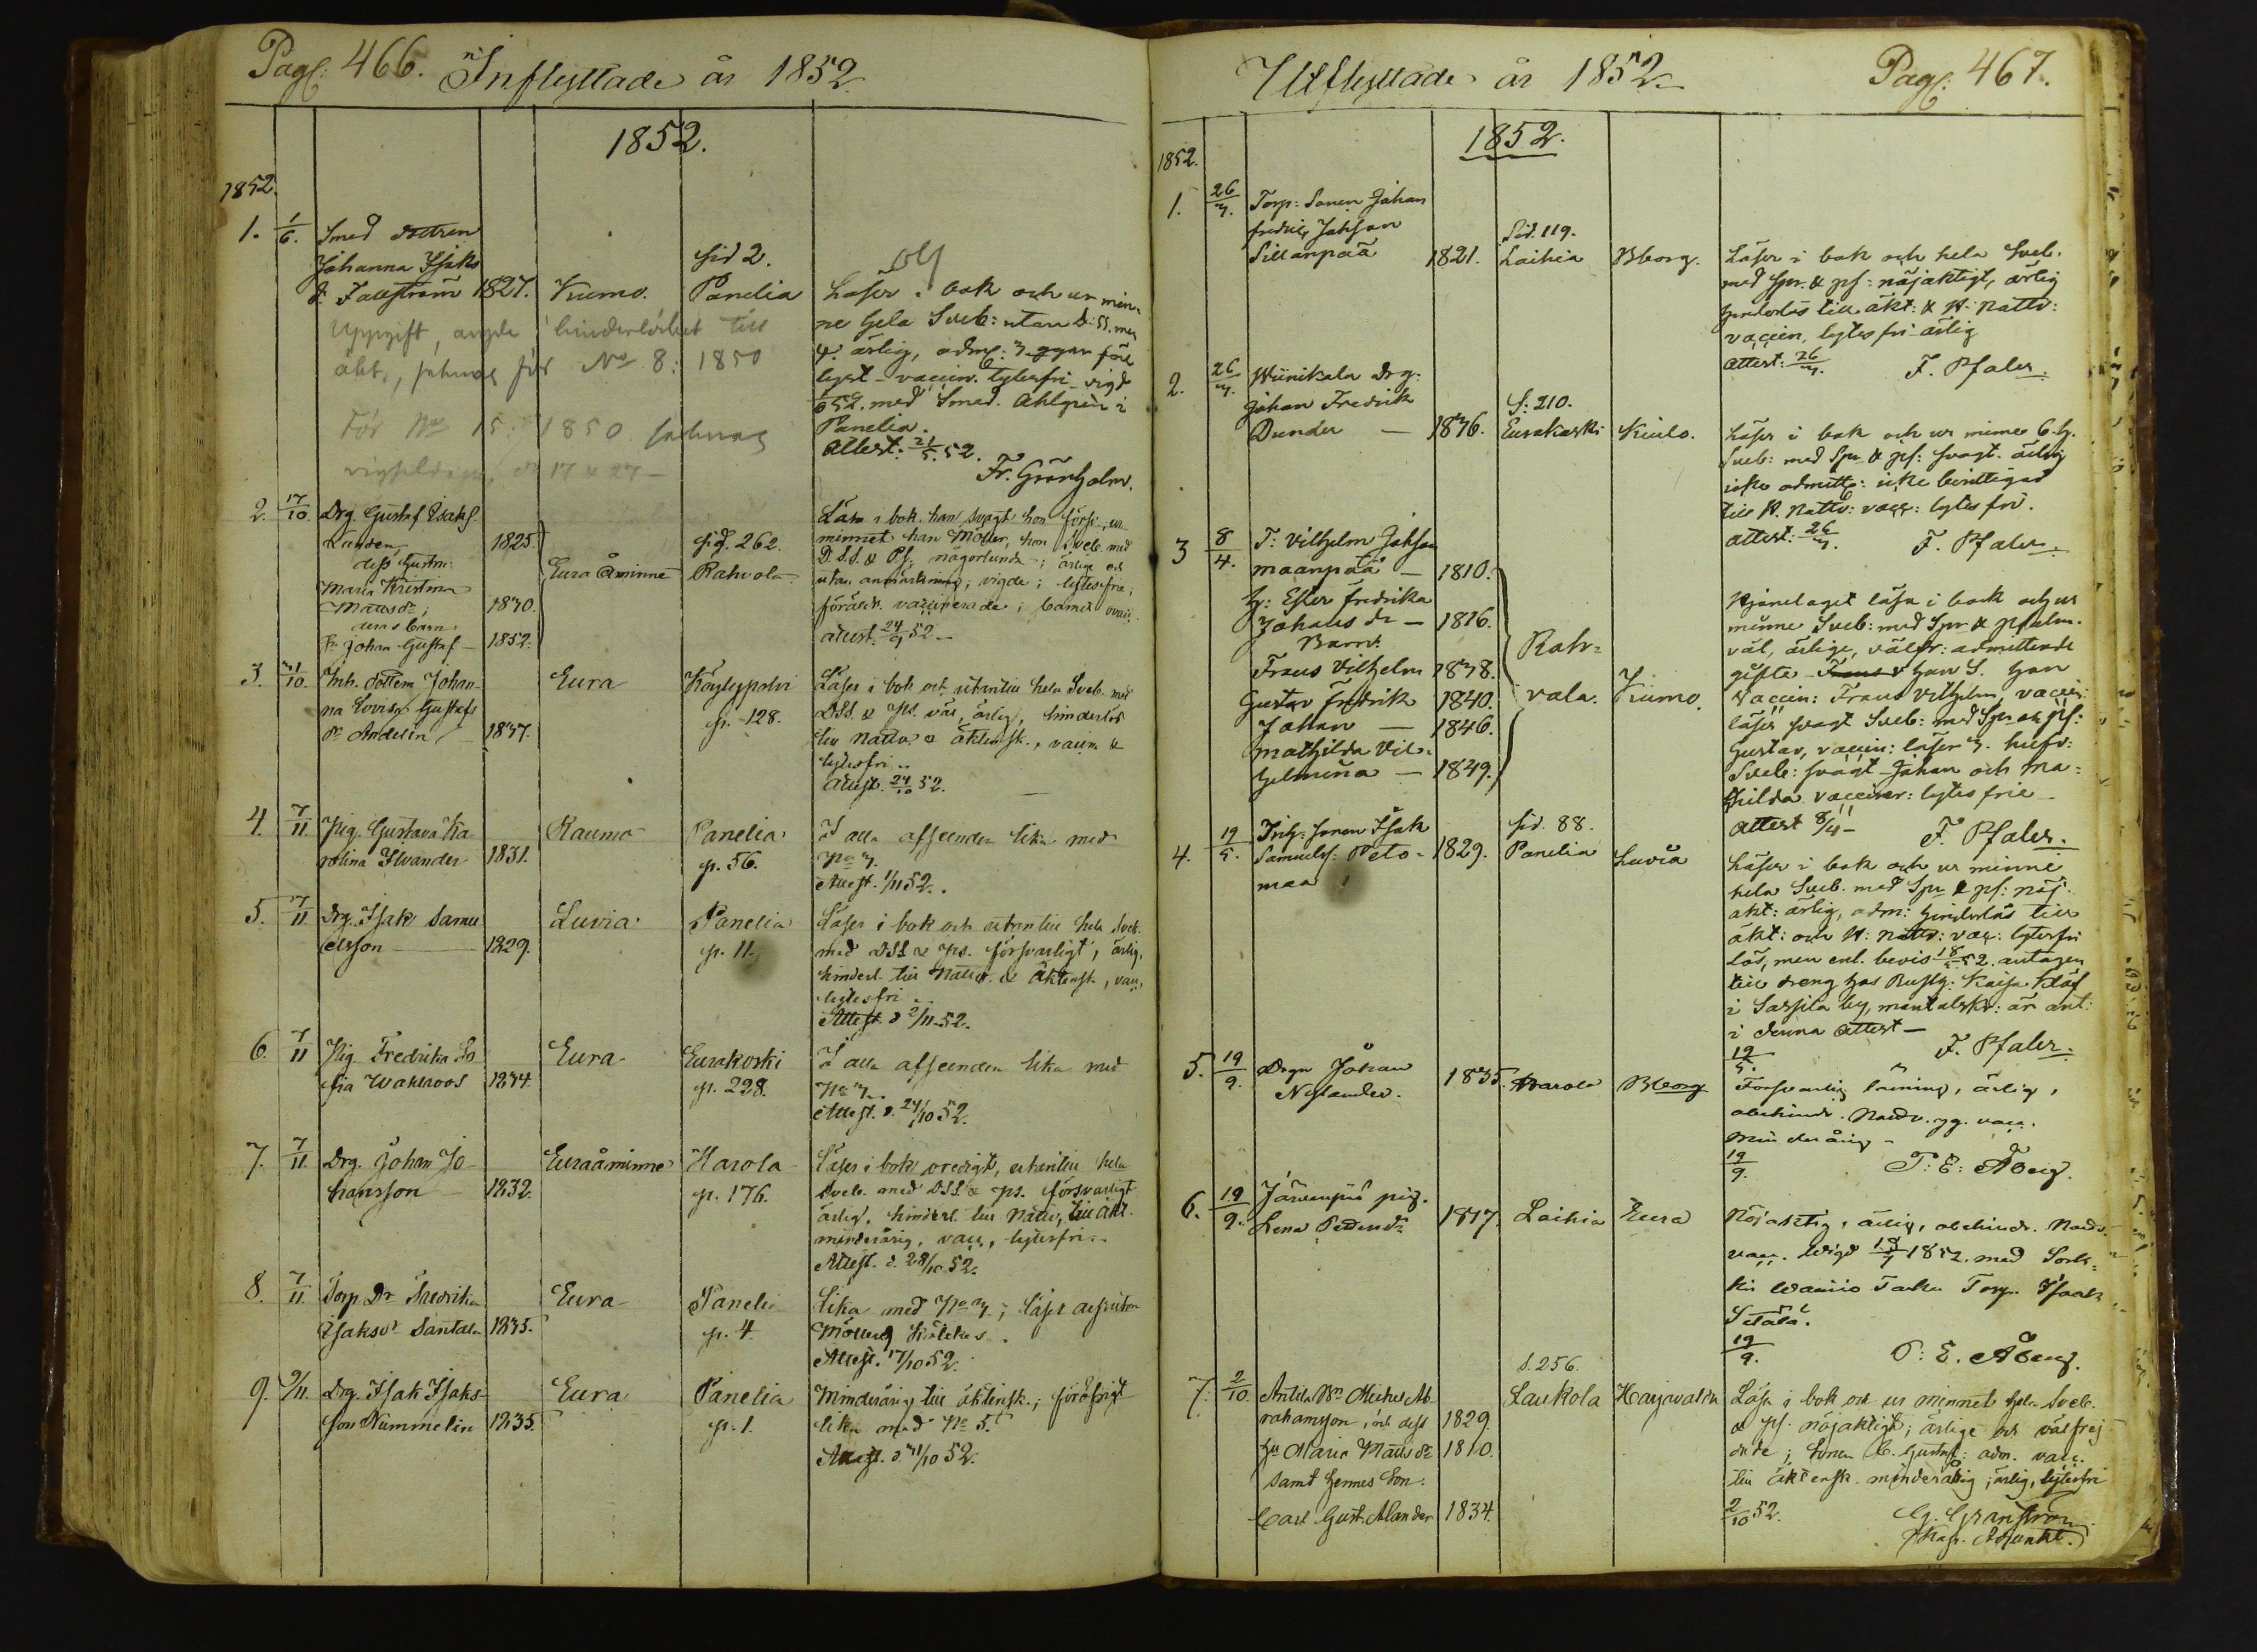 Pag: 466. Inflyttade år 1852.
1852.
1852.
1. 1/6. Smed dottren
Johanna Isaks
dr Fallström 1827. Kumo. sid 2. Panelia
Läser i bok och ur min-
ne hela Sveb: utan D. SS. men
ärlig, adm: 3 ggr före
lyst - vaccin. lytesfri - vigd
1/6 52. med Smed. Ahlgren i
Panelia.
Attest: 21/5. 52.
Fr. Grönholm.
Uppgift, angde hinderlöshet till
äkt., saknas för No 8: 1850
För No 15: 1850 saknas
2. 17/10. Drg. Gustaf Isaks.
Landen 1825.
dess hustru:
Maria Kristina
Mattsdr; 1830.
deras barn:
Johan Gustaf - 1852.
Eura Åminne sid. 262. Rahvola
Läsa i bok. han svagt hon förs:, ur
minnet han Möller, hon Sveb. med
D.S.S. & Ps. någorlunda; ärliga och
utan anmärkning; vigde; lytesfrie;
föräldr. vaccinerade; barnet ovacc.
attest. 24/9 52 -
3. 31/10. Inh. dottern Johan-
na Lovisa Gustafs
dr Andelin 1837. Eura Köylypolvi
p. 128.
Läser i bok och utantill hela Sveb. med
DSS. & Ps. väl, ärlig, hinderlös
till Nattv. & äktensk., vaccin &
lytesfri..
Attest. 24/10 52.
4. 7/11 Pig. Gustava Ka
rolina Ilvander 1831. Rauma Panelia
p. 56.
I alla afseenden lika med
No 3.
Attest. 1/11 52.
5. 7/11 Drg. Isak Samu
elsson 1829. Luvia Panelia
p. 11.
Läser i bok och utantill hela Sveb.
med DSS & Ps. försvarligt, ärlig,
hinderl. till Nattv. & Äktensk, vacc,
lytesfri..
Attest. d 2/11 52.
6. 7/11 Pig. Fredrika So
fia Wahlroos 1834. Eura Eurakoski
p. 228.
I alla afseenden lika med
No 3.
Attest. d. 24/10 52.
7. 7/11 Drg. Johan Jo-
hansson 1832. Euraåminne Harola
p. 176.
Läser i bok oredigt, utantill hela
Sveb. med DSS & Ps. försvarligt
ärlig, hinderl. till Nattv, till äkt.
minderårig, vacc, lytesfri..
Attest. d. 28/10 52.
8. 7/11 Torp Dr Fredrika
Isaksdr Santala 1835. Eura Panelia
p. 4.
Lika med No 3; läser dessutom
Möllers
Attest. 17/10 52.
9. 9/11. Drg. Isak Isaks-
son Nummelin 1835. Eura Panelia
p. 1.
Minderårig till äktensk.; föröfrigt
lika med No 5.
Attest. d. 31/10 52.
Utflyttade år 1852. Pag: 467.
1852.
1852.
1. 26/3. Torp: Sonen Johan
Fredrik Johsson
Sillanpää 1821. Sid. 119. Laihia Bborg.
Läser i bok och hela Sveb.
med Spr. & ps: nöjaktigt, ärlig
hinderlös till äkt: & H. Nattv:
vaccin, lytesfri - ärlig
attest: 26/3. F. Pfaler.
2. 26/3. Wiinikala Drg:
Johan Fredrik
Dunder - 1836. S: 210. Eurakoski Kiulo.
Läser i bok och ur minne 6. h.
Sveb: med Spr & ps: svagt. ärlig
icke admitt: icke berättigad
till H. Nattv: vacc: lytesfri.
attest: 26/3. F. Pfaler.
3 8/4. T: Vilhelm Johsson
Maanpää - 1810.
h: Ester Fredrika
Johans dr - 1816.
Barn:
Frans Vilhelm 1838.
Gustav Fredrik 1840.
Johan - 1846.
Mathilda Vil-
helmina - 1849.
Rah-
vola. Kumo.
Hjonelaget läsa i bok och ur
minne Sveb: med Spr & psalm.
väl, ärlige, välfr: admitterade
gifte - Frans & han S. han
vaccin: Frans Vilhelm, vaccin:
läser svagt Sveb: med Spr och ps:
Gustav, vaccin: läser 3. hufv:
Sveb: svagt - Johan och Ma-
thilda vacciner: lytesfrie -
Attest 8/4 - F. Pfaler.
4. 19/5. Inh: sonen Isak
Samuels: Peto- 1829. sid. 88. Panelia Luvia
maa
Läser i bok och ur minne
hela Sveb. med Spr & ps: nöj-
akt: ärlig, adm: hinderlös till
äkt: och H: nattv: vac: lytesfri
lös, men enl. bevis 18/5 52. antagen
till dreng hos Rusth: Kaisa Klås
i Sassila by, mantalskr: är ant:
i denna attest -
19/5. F. Pfaler.
5. 19/9. Drgn Johan
Nylander. 1835. Harola Bborg
Försvarlig läsning, ärlig,
obehindr. Nattv. gg. vacc.
Minderårig -
19/9. P: E: Åberg.
6. 19/9. Järvenpää pig.
Lena Pettersdr 1817. Laihia Eura
Nöjaktig, ärlig, obehindr. Nattv.
vacc. wigd 18/7 1852. med Sork-
kis Torp. Isaak
Setälä.
19/9. P: E. Åberg.
7. 2/10. Antila Michel Ab-
rahamsson, och dess 1829
hu Maria Matts dr 1810.
samt hennes Son:
Carl Gust. Alander 1834.
S. 256. Laukola Harjavalta
Läsa i bok och ur minnet hela Sveb.
& ps. nöjaktigt; ärlige och välfrej-
dade; Sonen C. Gustaf: adm. vacc.
till äktensk. minderårig; ärlig, lytesfri
2/10 52. G. Granström